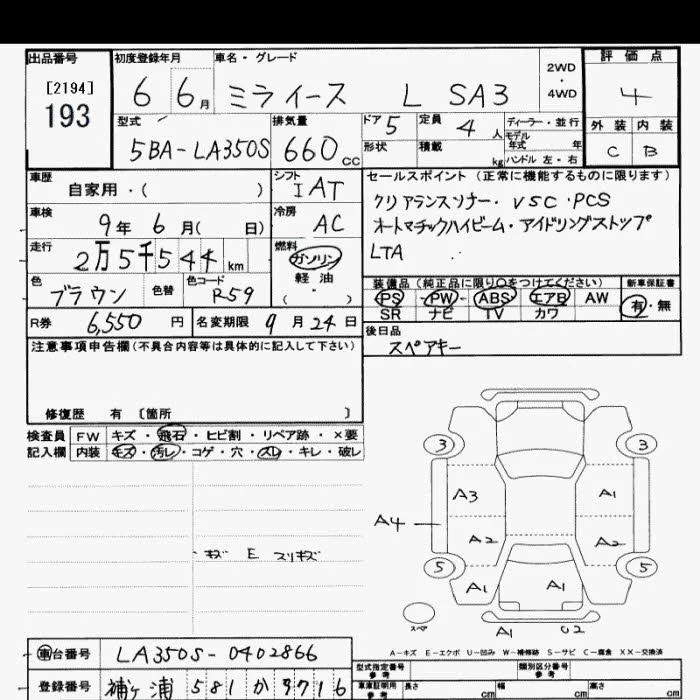 出品番号 初度登録年月 車名・グレード 2WD・4WD 評価点
[2194]
193
6 6月 ミライース L SA3 4
型式 排気量 ドア 5 定員 4人 ディーラー・並行 外装 内装
5BA-LA350S 660cc 形状 積載 kg モデル年式 年 ハンドル 左・右 C B
車歴 自家用・( ) シフト IAT セールスポイント (正常に機能するものに限ります)
車検 9年 6月( 日) 冷房 AC クリアランスソナー・VSC・PCS
オートマチックハイビーム・アイドリングストップ
走行 2万5千544km 燃料 ガソリン 軽油 ( ・ ) LTA
色 ブラウン 色替 色コード R59 装備品 (純正品に限り○をつけてください) 新車保証書
PS・PW・ABS・エアB AW 有・無
SR ナビ TV カワ
R券 6,550円 名変期限 9月24日 後日品
スペアキー
注意事項申告欄(不具合内容等は具体的に記入して下さい)
修復歴 有 〔箇所 〕
検査員記入欄 FW キズ・飛石・ヒビ割・リペア跡・×要
内装 キズ・汚レ・コゲ・穴・スレ・キレ・破レ
3 3
A3 A1
A4
A2 A2
・キズ E スリキズ
5 5
A1 A1
スペア
A1 U2
A-キズ E-エクボ U-凹み W-補修跡 S-サビ C-腐食 XX-交換済
車台番号 LA350S-0402866
型式指定番号 参考 類別区分番号 参考
登録番号 袖ヶ浦 581 か 9716
車庫証明用 参考 長さ cm 幅 cm 高さ cm